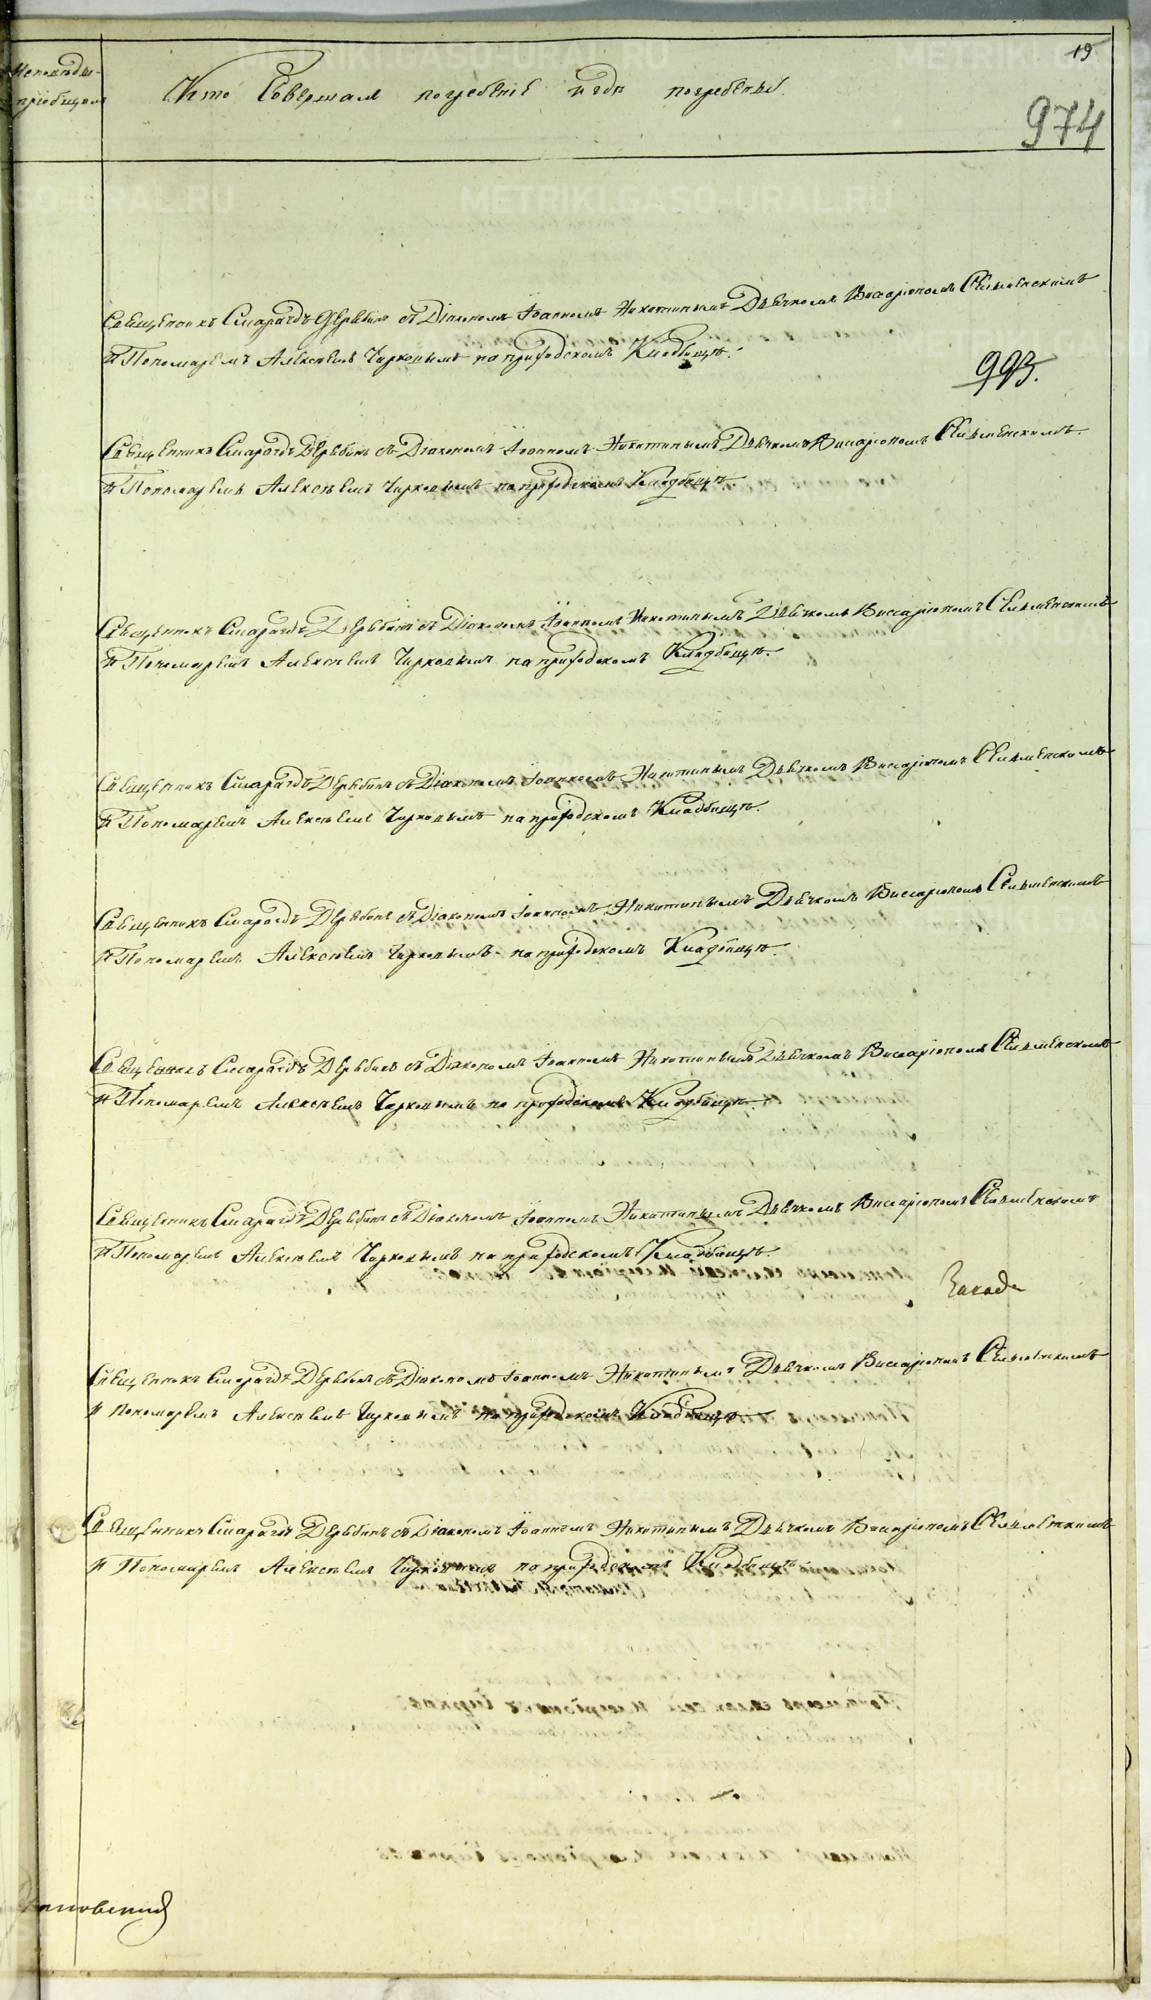 19
974
Кто Совершал погребенiе и гдѣ погребены.
Священникъ Смарагдъ Дерябинъ съ Дiакономъ Iоанномъ Никитинымъ Дьячкомъ Виссарiономъ Селменскимъ
и Пономаремъ Алексѣемъ Чирковымъ на приходскомъ Кладбищѣ.
993.
Священникъ Смарагдъ Дерябинъ съ Дiакономъ Iоанномъ Никитинымъ Дьячкомъ Виссарiономъ Селменскимъ
и Пономаремъ Алексѣемъ Чирковымъ на приходскомъ Кладбищѣ.
Священникъ Смарагдъ Дерябинъ съ Дiакономъ Iоанномъ Никитинымъ Дьячкомъ Виссарiономъ Селменскимъ
и Пономаремъ Алексѣемъ Чирковымъ на приходскомъ Кладбищѣ.
Священникъ Смарагдъ Дерябинъ съ Дiакономъ Iоанномъ Никитинымъ Дьячкомъ Виссарiономъ Селменскимъ
и Пономаремъ Алексѣемъ Чирковымъ на приходскомъ Кладбищѣ.
Священникъ Смарагдъ Дерябинъ съ Дiакономъ Iоанномъ Никитинымъ Дьячкомъ Виссарiономъ Селменскимъ
и Пономаремъ Алексѣемъ Чирковымъ на приходскомъ Кладбищѣ.
Священникъ Смарагдъ Дерябинъ съ Дiакономъ Iоанномъ Никитинымъ Дьячкомъ Виссарiономъ Селменскимъ
и Пономаремъ Алексѣемъ Чирковымъ на приходскомъ Кладбищѣ.
Священникъ Смарагдъ Дерябинъ съ Дiакономъ Iоанномъ Никитинымъ Дьячкомъ Виссарiономъ Селменскимъ
и Пономаремъ Алексѣемъ Чирковымъ на приходскомъ Кладбищѣ.
Священникъ Смарагдъ Дерябинъ съ Дiакономъ Iоанномъ Никитинымъ Дьячкомъ Виссарiономъ Селменскимъ
и Пономаремъ Алексѣемъ Чирковымъ на приходскомъ Кладбищѣ.
Священникъ Смарагдъ Дерябинъ съ Дiакономъ Iоанномъ Никитинымъ Дьячкомъ Виссарiономъ Селменскимъ
и Пономаремъ Алексѣемъ Чирковымъ на приходскомъ Кладбищѣ.